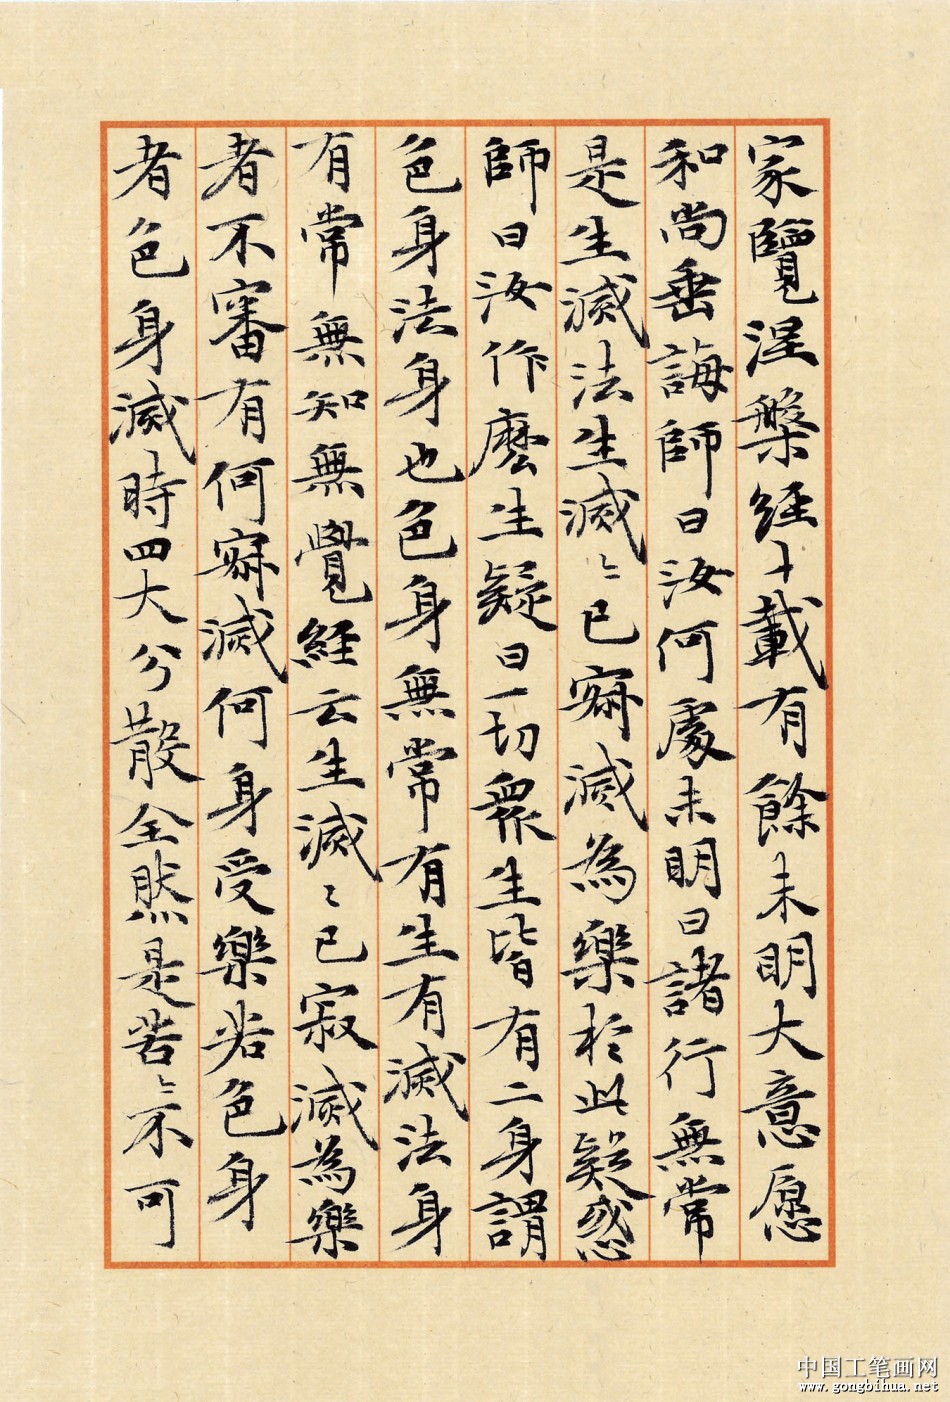 家覽涅槃經十載有餘未明大意愿
和尚垂誨師曰汝何處未明曰諸行無常
是生滅法生滅〻已寂滅為樂於此疑惑
師曰汝作麽生疑曰一切衆生皆有二身謂
色身法身也色身無常有生有滅法身
有常無知無覺經云生滅〻已寂滅為樂
者不審有何寂滅何身受樂若色身
者色身滅時四大分散全然是苦〻不可
中国工笔画网
www.gongbihua.net